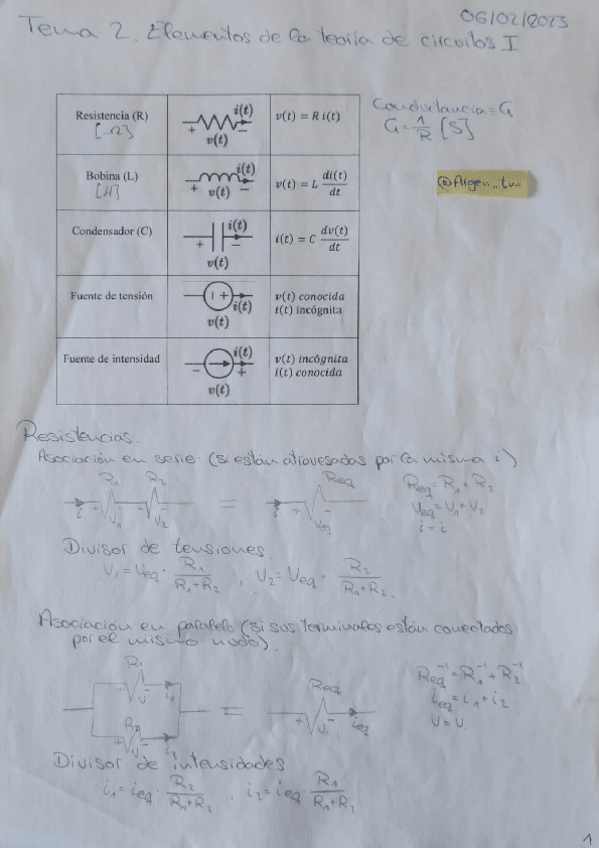 06/02/2023
Tema 2. Elementos de la teoría de circuitos I
Resistencia (R)
[Ω]
i(t)
+ −
v(t)
v(t) = R i(t)
Conductancia = G
G = 1/R [S]
Bobina (L)
[H]
i(t)
+ v(t) −
v(t) = L di(t)/dt
Condensador (C)
i(t)
+ −
v(t)
i(t) = C dv(t)/dt
Fuente de tensión
i(t)
v(t)
v(t) conocida
i(t) incógnita
Fuente de intensidad
i(t)
− +
v(t)
v(t) incógnita
i(t) conocida
Resistencias.
Asociación en serie (si están atravesadas por la misma i)
R1 R2 Req
i + V1 − + V2 − = i + Veq −
Req = R1 + R2
Veq = V1 + V2
i = i
Divisor de tensiones.
V1 = Veq · R1/(R1+R2) , V2 = Veq · R2/(R1+R2)
Asociación en paralelo (si sus terminales están conectados
por el mismo nudo).
R1
+ V − i1
R2
+ V − i2
=
Req
+ V − ieq
Req⁻¹ = R1⁻¹ + R2⁻¹
ieq = i1 + i2
V = V.
Divisor de intensidades
i1 = ieq · R2/(R1+R2) , i2 = ieq · R1/(R1+R2)
1